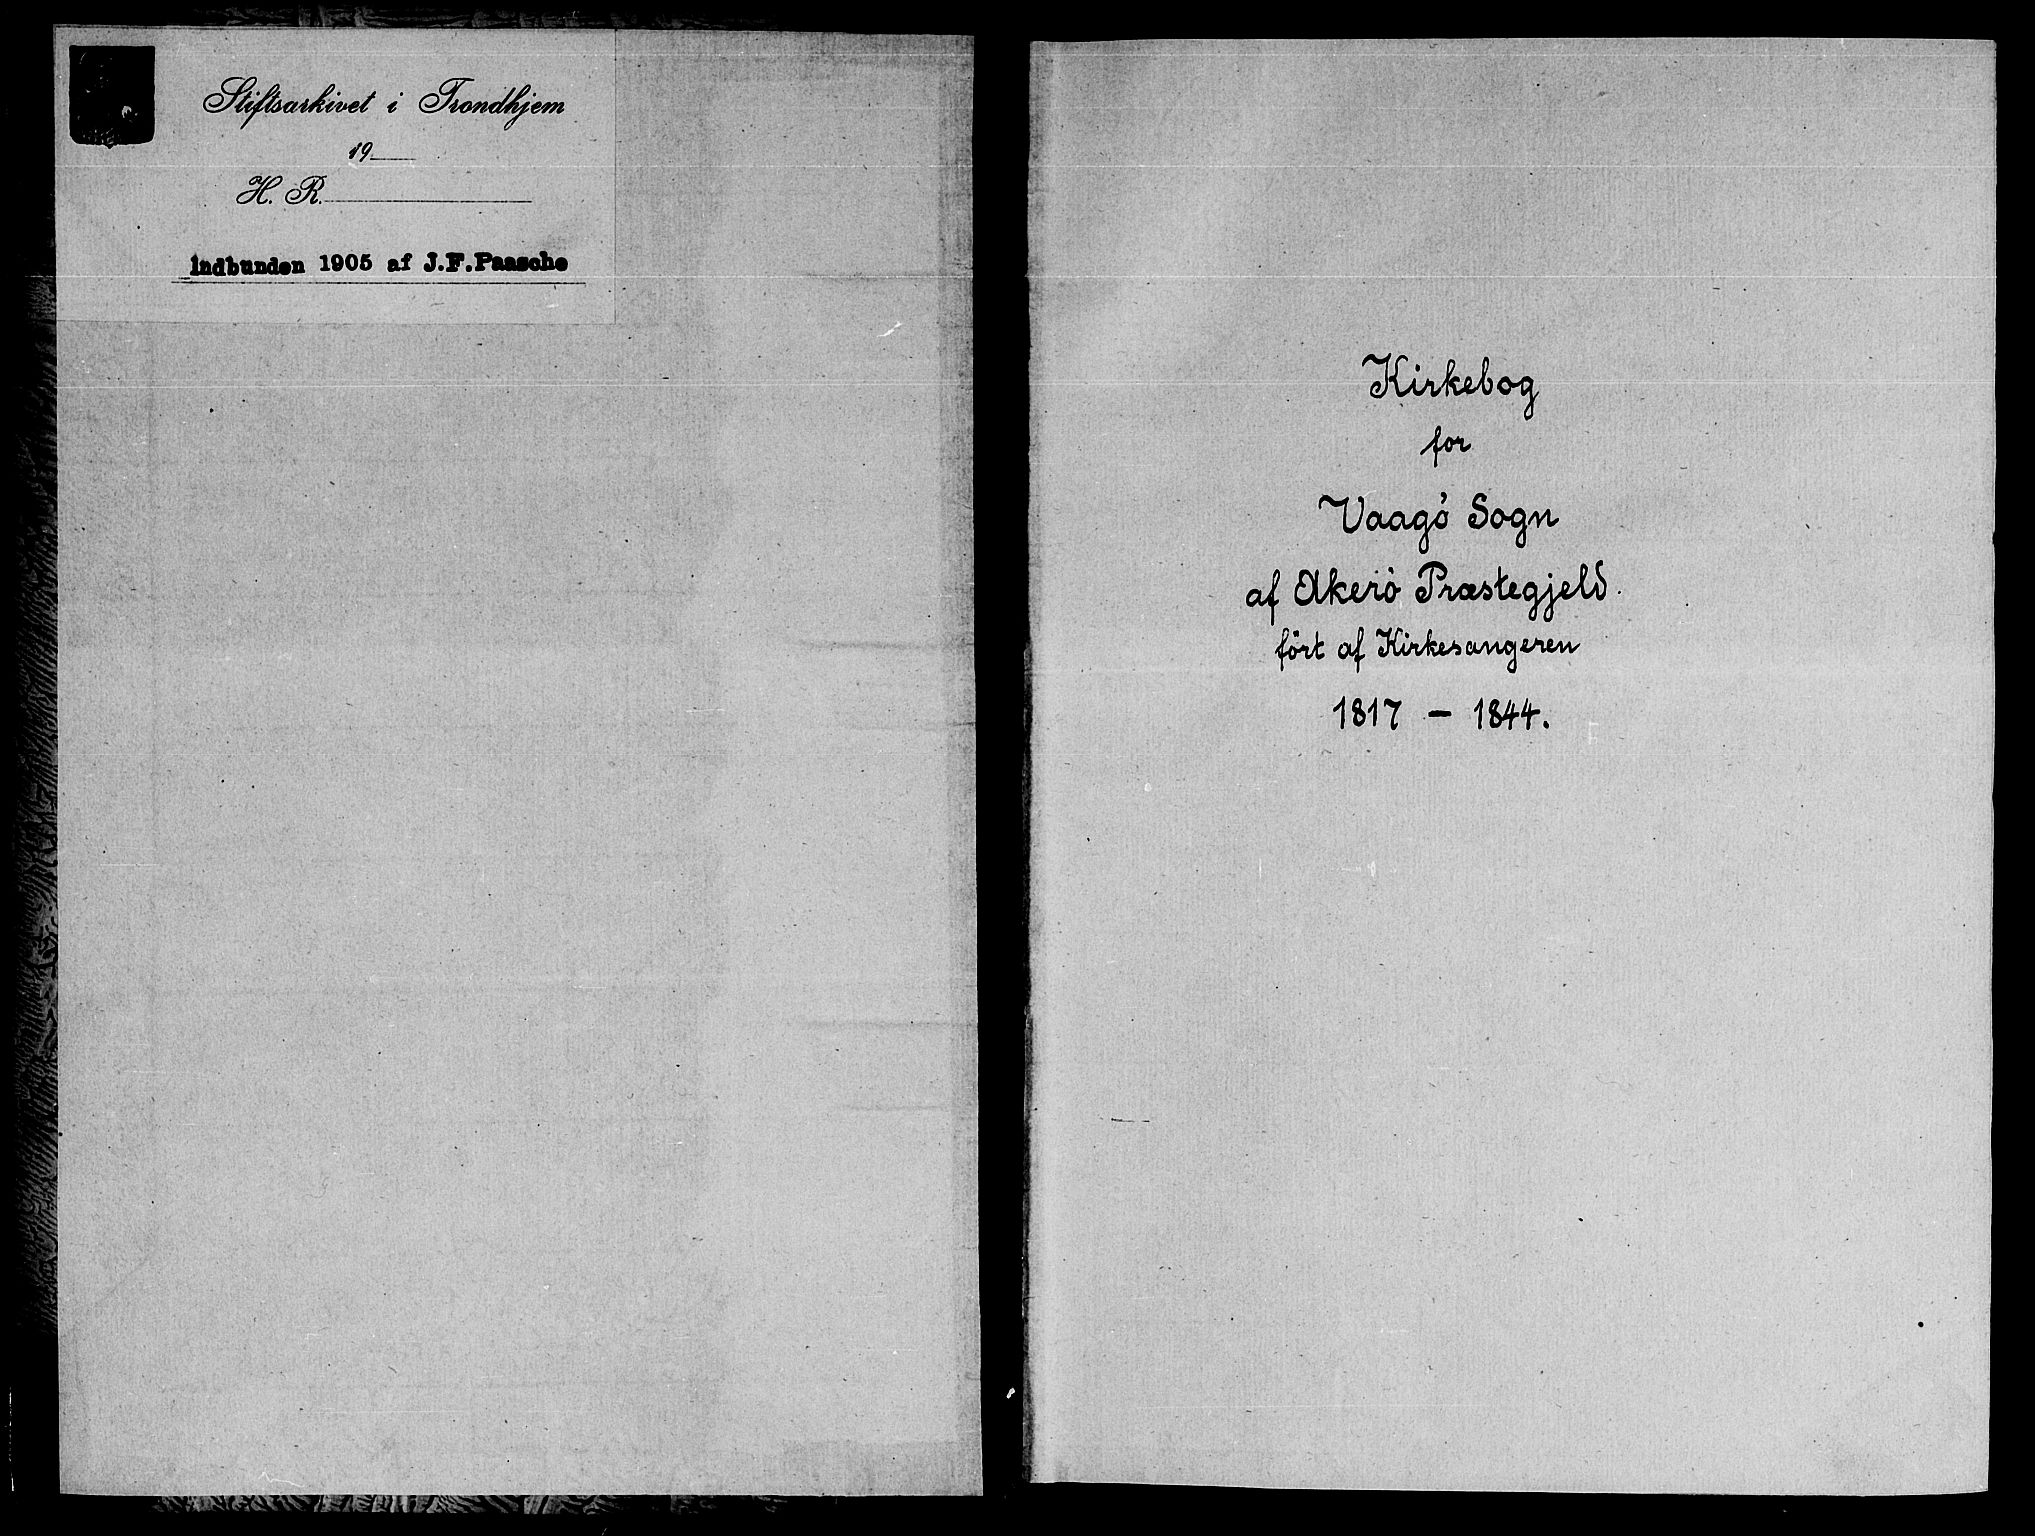 Stiftsarkivet i Trondhjem
19
H. R.
Indbunden 1905 af J.F.Paasche
Kirkebog
for
Vaagö Sogn
af Akerö Præstegjeld.
fört af Kirkesangeren
1817 - 1844.